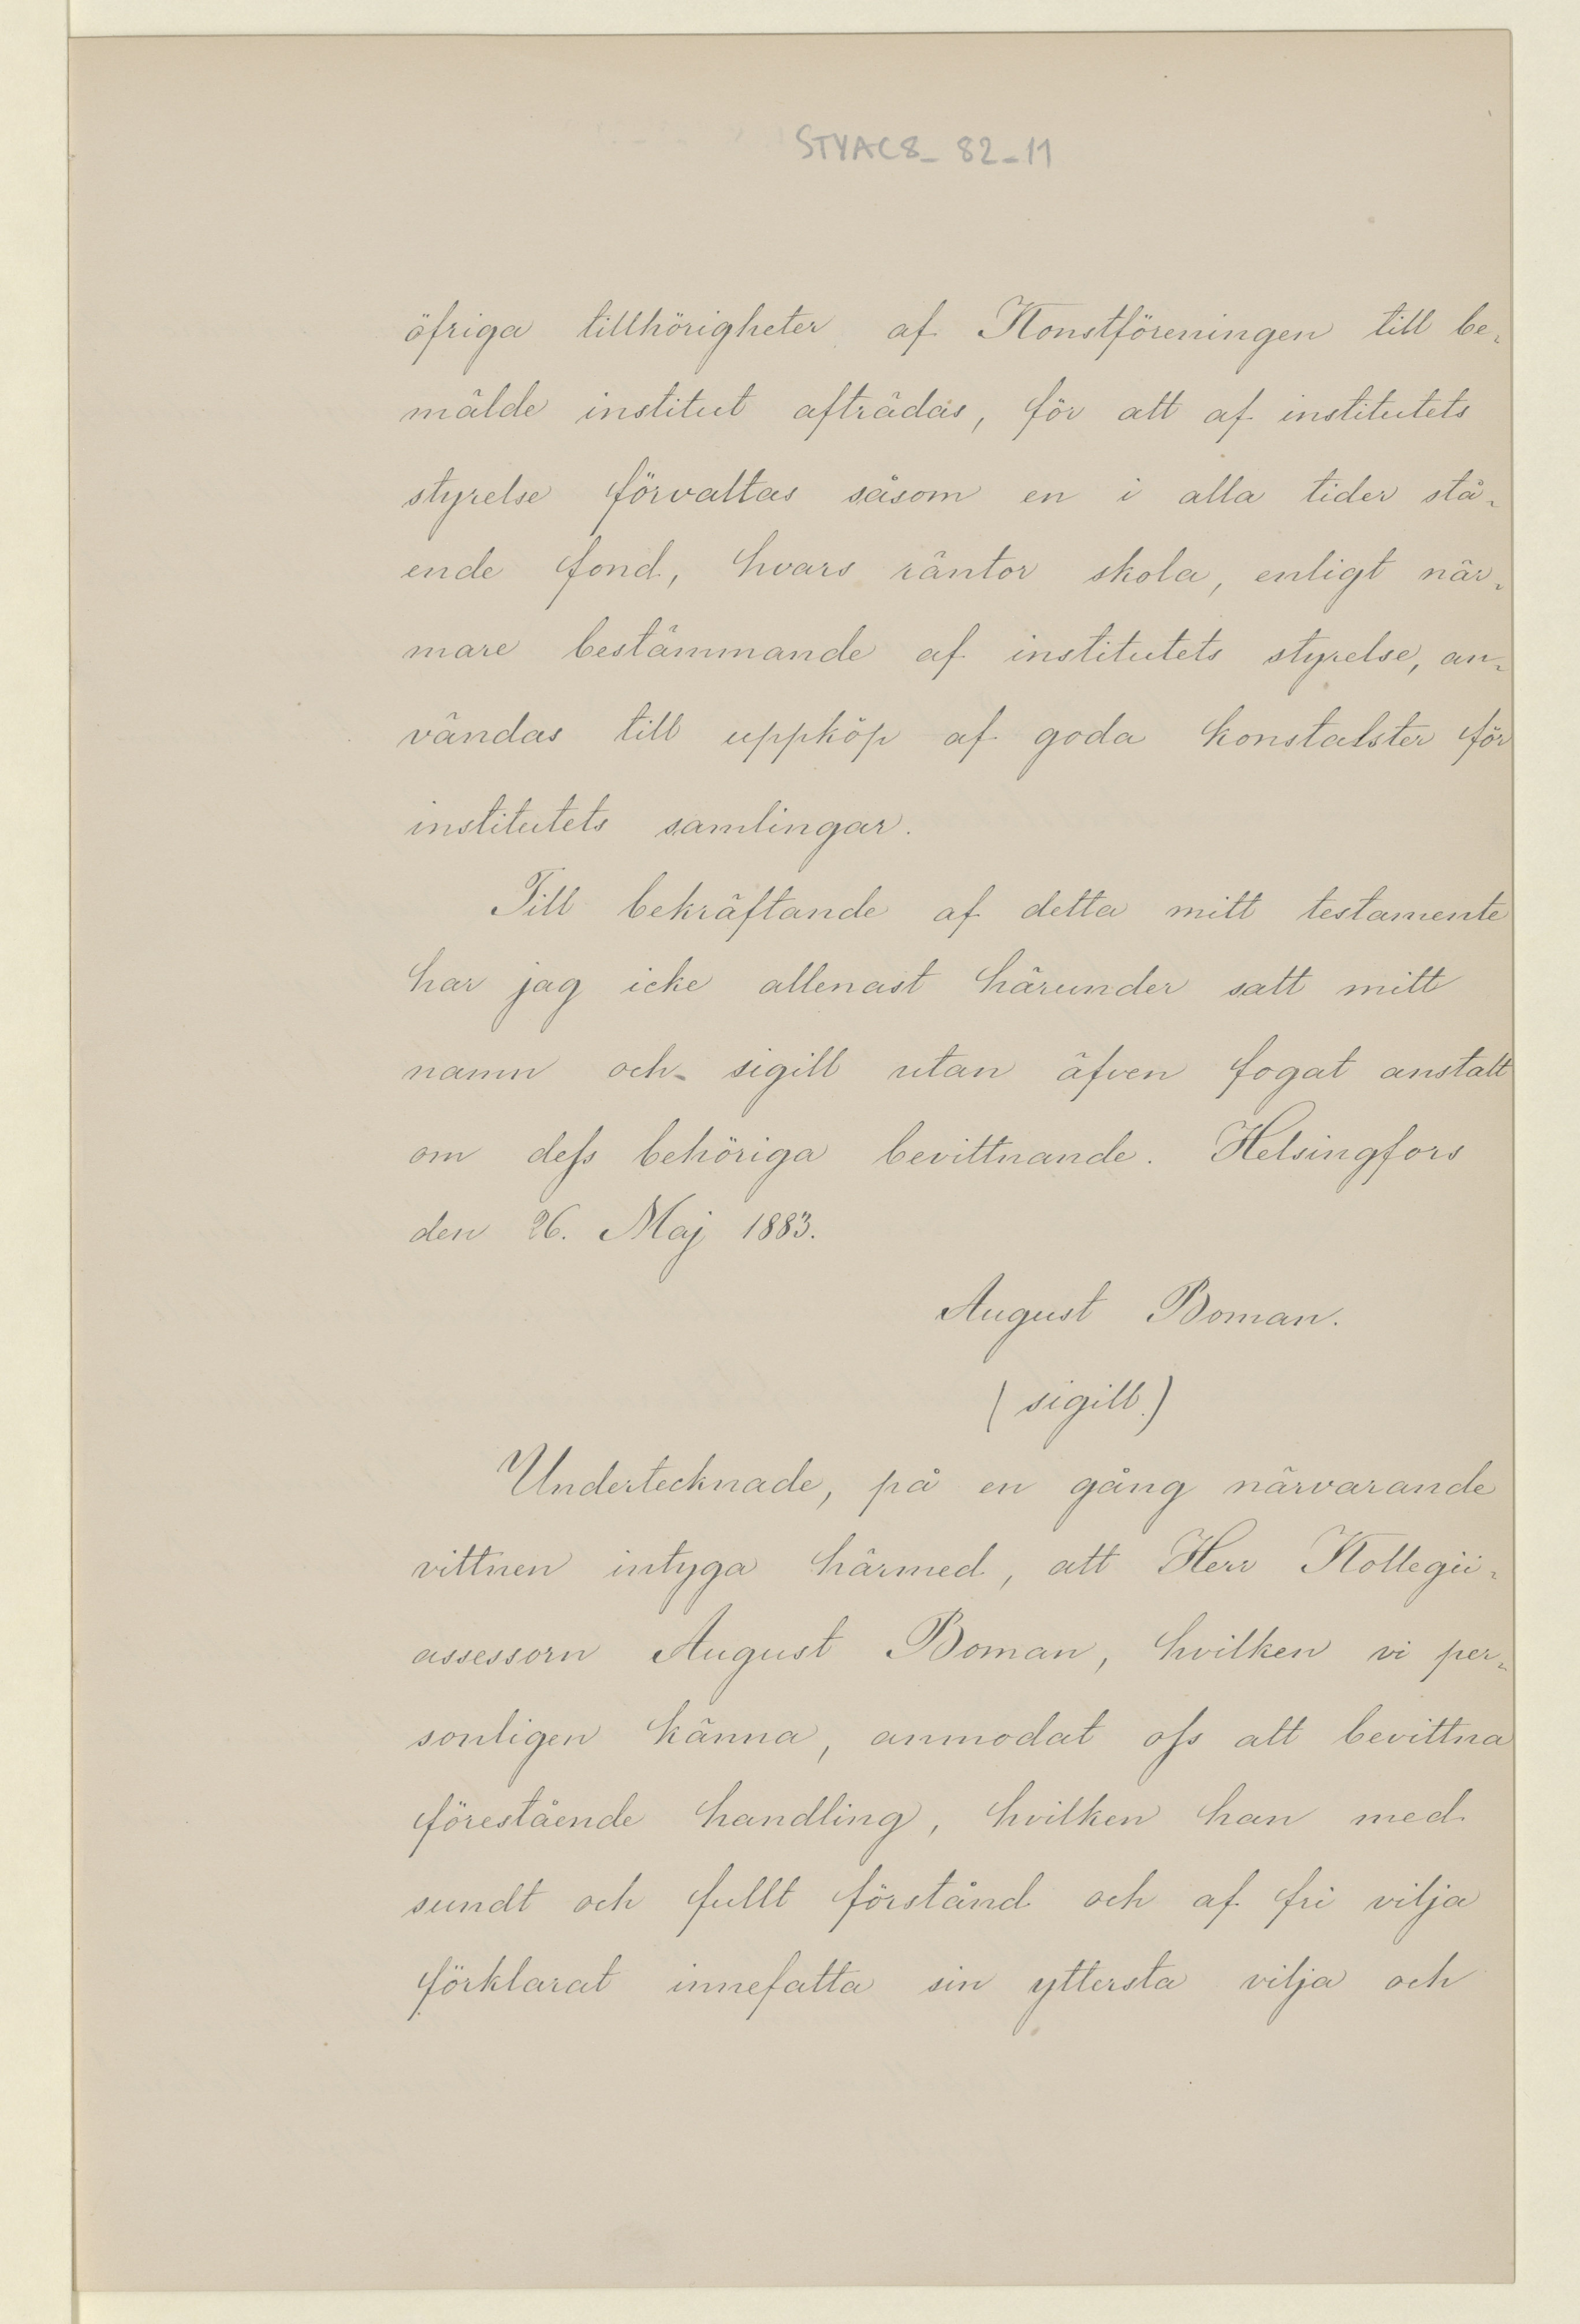 STYAC8_ 82-11
öfriga tillhörigheter af Konstföreningen till be-
mälde institut afträdas, för att af institutets
styrelse förvaltas såsom en i alla tider stå-
ende fond, hvars räntor skola, enligt när-
mare bestämmande af institutets styrelse, an-
vändas till uppköp af goda konstalster för
institutets samlingar.
Till bekräftande af detta mitt testamente
har jag icke allenast härunder satt mitt
namn och sigill utan äfven fogat anstalt
om dess behöriga bevittnande. Helsingfors
den 26. Maj 1883.
August Boman.
(sigill.)
Undertecknade, på en gång närvarande
vittnen intyga härmed, att Herr Kollegii-
assessorn August Boman, hvilken vi per-
sonligen känna, anmodat oss att bevittna
förestående handling, hvilken han med
sundt och fullt förstånd och af fri vilja
förklarat innefatta sin yttersta vilja och